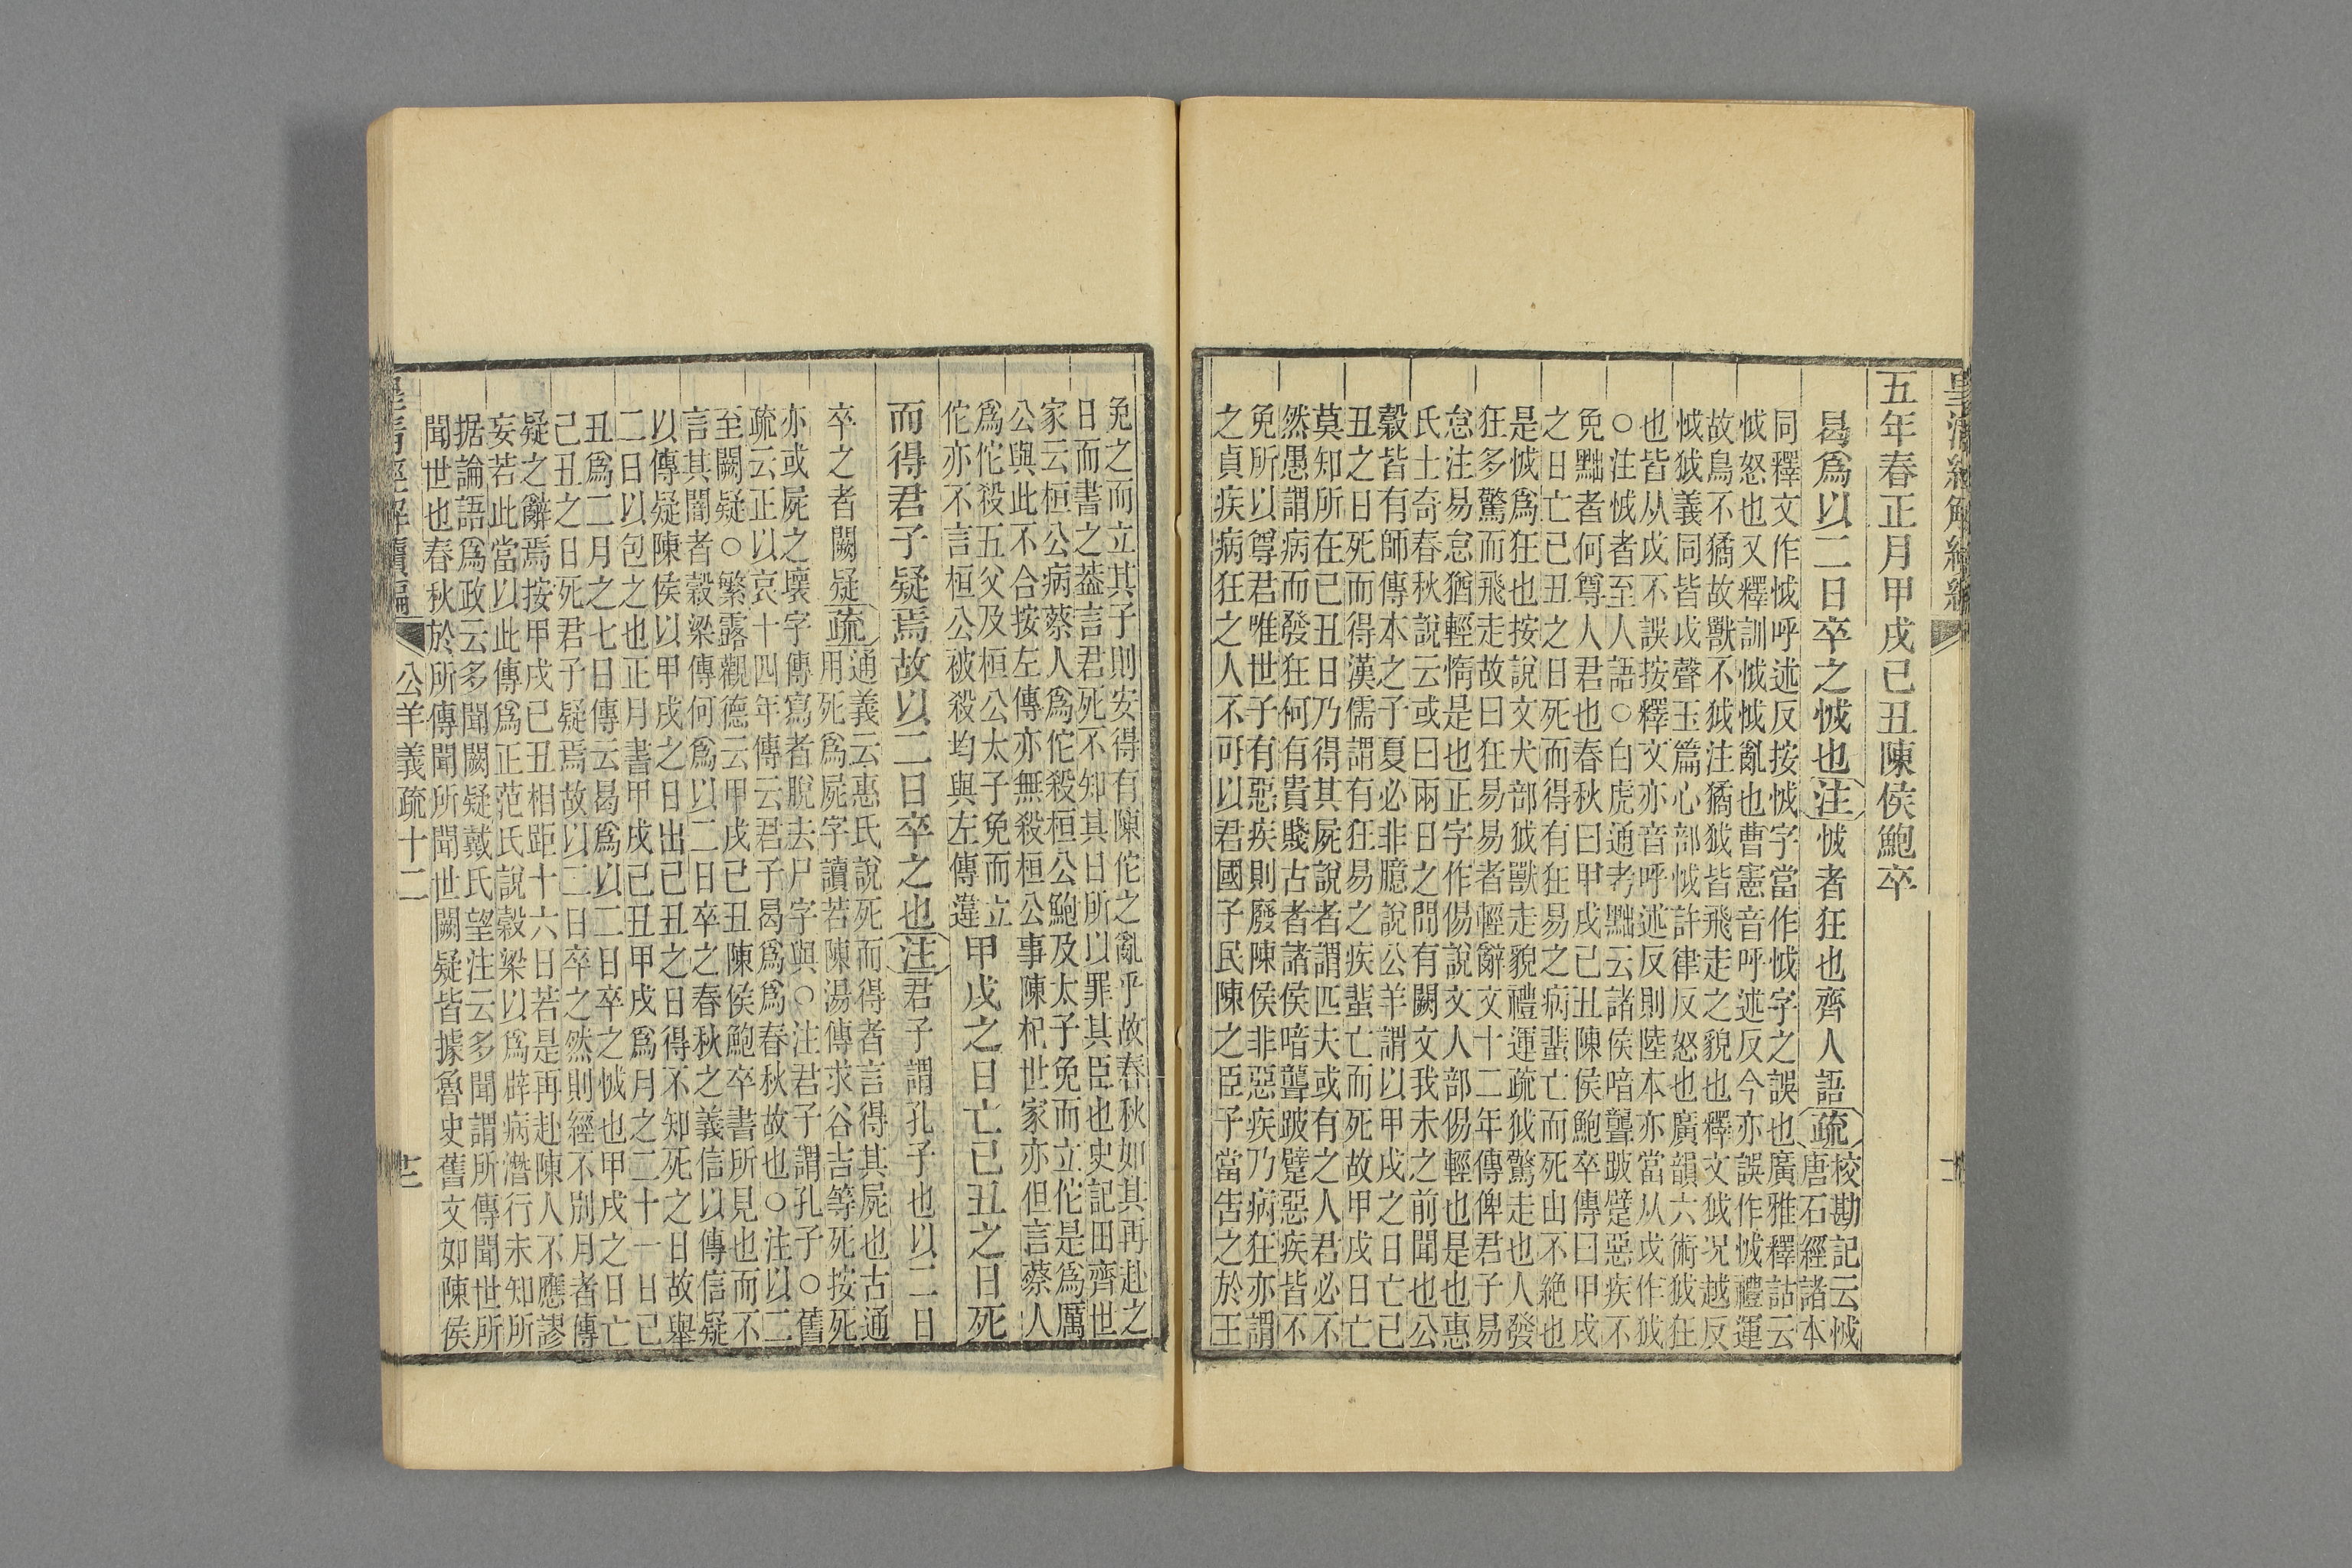 皇清經解續編
五年春正月甲戌已丑陳侯鮑卒
曷爲以二日卒之怴也注怴者狂也齊人語疏校勘記云怴
唐石經諸本
同釋文作怴呼述反按怴字當作怴字之誤也廣雅釋詁云
怴怒也又釋訓怴怴亂也曹憲音呼述反今亦誤作怴禮運
故鳥不獝故獸不狘注獝狘皆飛走之貌也釋文狘況越反
怴狘義同皆戉聲玉篇心部怴許律反怒也廣韻六術狘狂
也皆从戉不誤按釋文亦音呼述反則陸本亦當从戉作狘
○注怴者至人語○白虎通考黜云諸侯喑聾跛躄惡疾不
免黜者何尊人君也春秋曰甲戌已丑陳侯鮑卒傳曰甲戌
之日亡已丑之日死而得有狂易之病蜚亡而死山不絶也
是怴爲狂也按說文犬部狘獸走貌禮運疏狘驚走也人發
狂多驚而飛走故曰狂易易者輕辭文十二年傳俾君子易
怠注易怠猶輕惰是也正字作傷說文人部傷輕也是也惠
氏士奇春秋說云或曰兩日之問有闕文我未之前聞也公
穀皆有師傳本之子夏必非臆說公羊謂以甲戌之日亡已
丑之日死而得漢儒謂有狂易之疾蜚亡而死故甲戌日亡
莫知所在已丑日乃得其屍說者謂匹夫或有之人君必不
然愚謂病而發狂何有貴賤古者諸侯喑聾跛躄惡疾皆不
免所以尊君唯世子有惡疾則廢陳侯非惡疾乃病狂亦謂
之貞疾病狂之人不可以君國子民陳之臣子當告之於王
免之而立其子則安得有陳佗之亂乎故春秋如其再赴之
日而書之葢言君死不知其日所以罪其臣也史記田齊世
家云桓公病蔡人爲佗殺桓公鮑及太子免而立佗是爲厲
公與此不合按左傳亦無殺桓公事陳杞世家亦但言蔡人
爲佗殺五父及桓公太子免而立
佗亦不言桓公被殺均與左傳違
甲戌之日亡已丑之日死
而得君子疑焉故以二日卒之也注君子謂孔子也以二日
卒之者闕疑疏通義云惠氏說死而得者言得其屍也古通
用死爲屍字讀若陳湯傳求谷吉等死按死
亦或屍之壞字傳寫者脫去尸字與○注君子謂孔子○舊
疏云正以哀十四年傳云君子曷爲爲春秋故也○注以二
至闕疑○繁露觀德云甲戌已丑陳侯鮑卒書所見也而不
言其闇者穀梁傳何爲以二日卒之春秋之義信以傳信疑
以傳疑陳侯以甲戌之日出已丑之日得不知死之日故舉
二日以包之也正月書甲戌已丑甲戌爲月之二十一日已
丑爲二月之七日傳云曷爲以二日卒之怴也甲戌之日亡
已丑之日死君子疑焉故以二日卒之然則經不別月者傳
疑之辭焉按甲戌已丑相距十六日若是再赴陳人不應謬
妄若此當以此傳爲正范氏說穀梁以爲辟病潛行未知所
据論語爲政云多聞闕疑戴氏望注云多聞謂所傳聞世所
聞世也春秋於所傳聞所聞世闕疑皆據魯史舊文如陳侯
皇清經解續編 公羊義疏十二